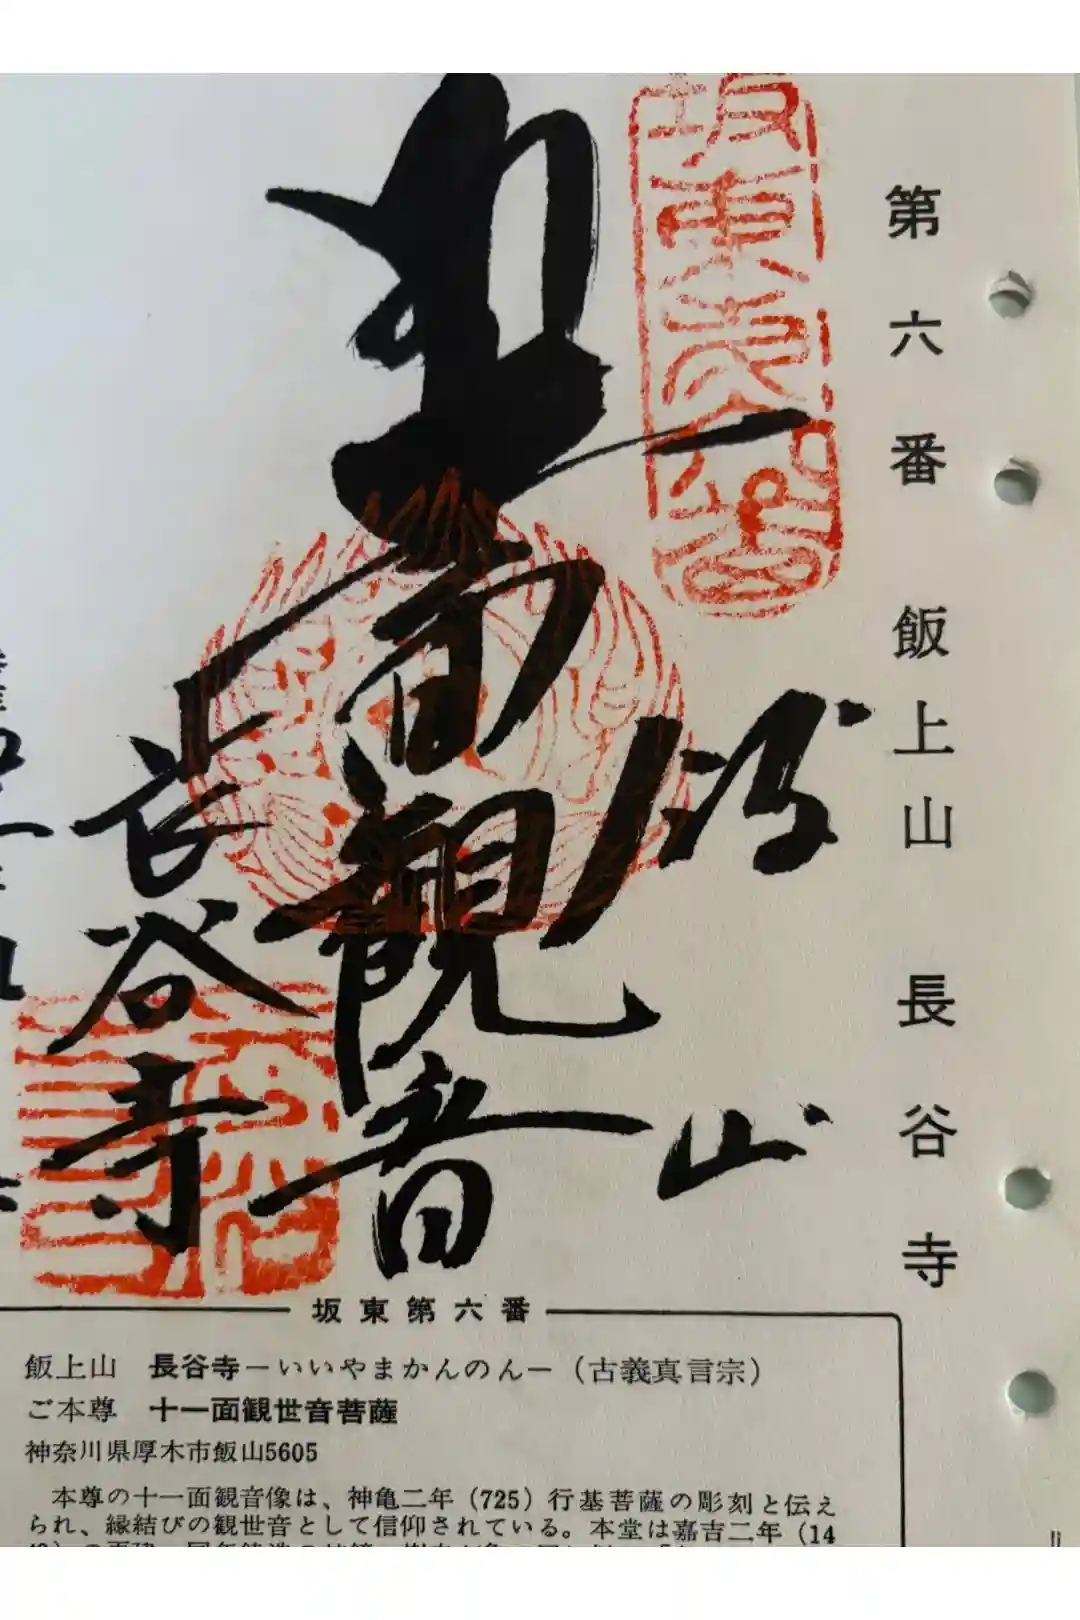 第六番 飯上山 長谷寺
坂東第六番
飯山
観音
長谷寺
坂東第六番
飯上山 長谷寺－いいやまかんのん－（古義真言宗）
ご本尊 十一面観世音菩薩
神奈川県厚木市飯山5605
本尊の十一面観音像は、神亀二年（725）行基菩薩の彫刻と伝え
られ、縁結びの観世音として信仰されている。本堂は嘉吉二年（14